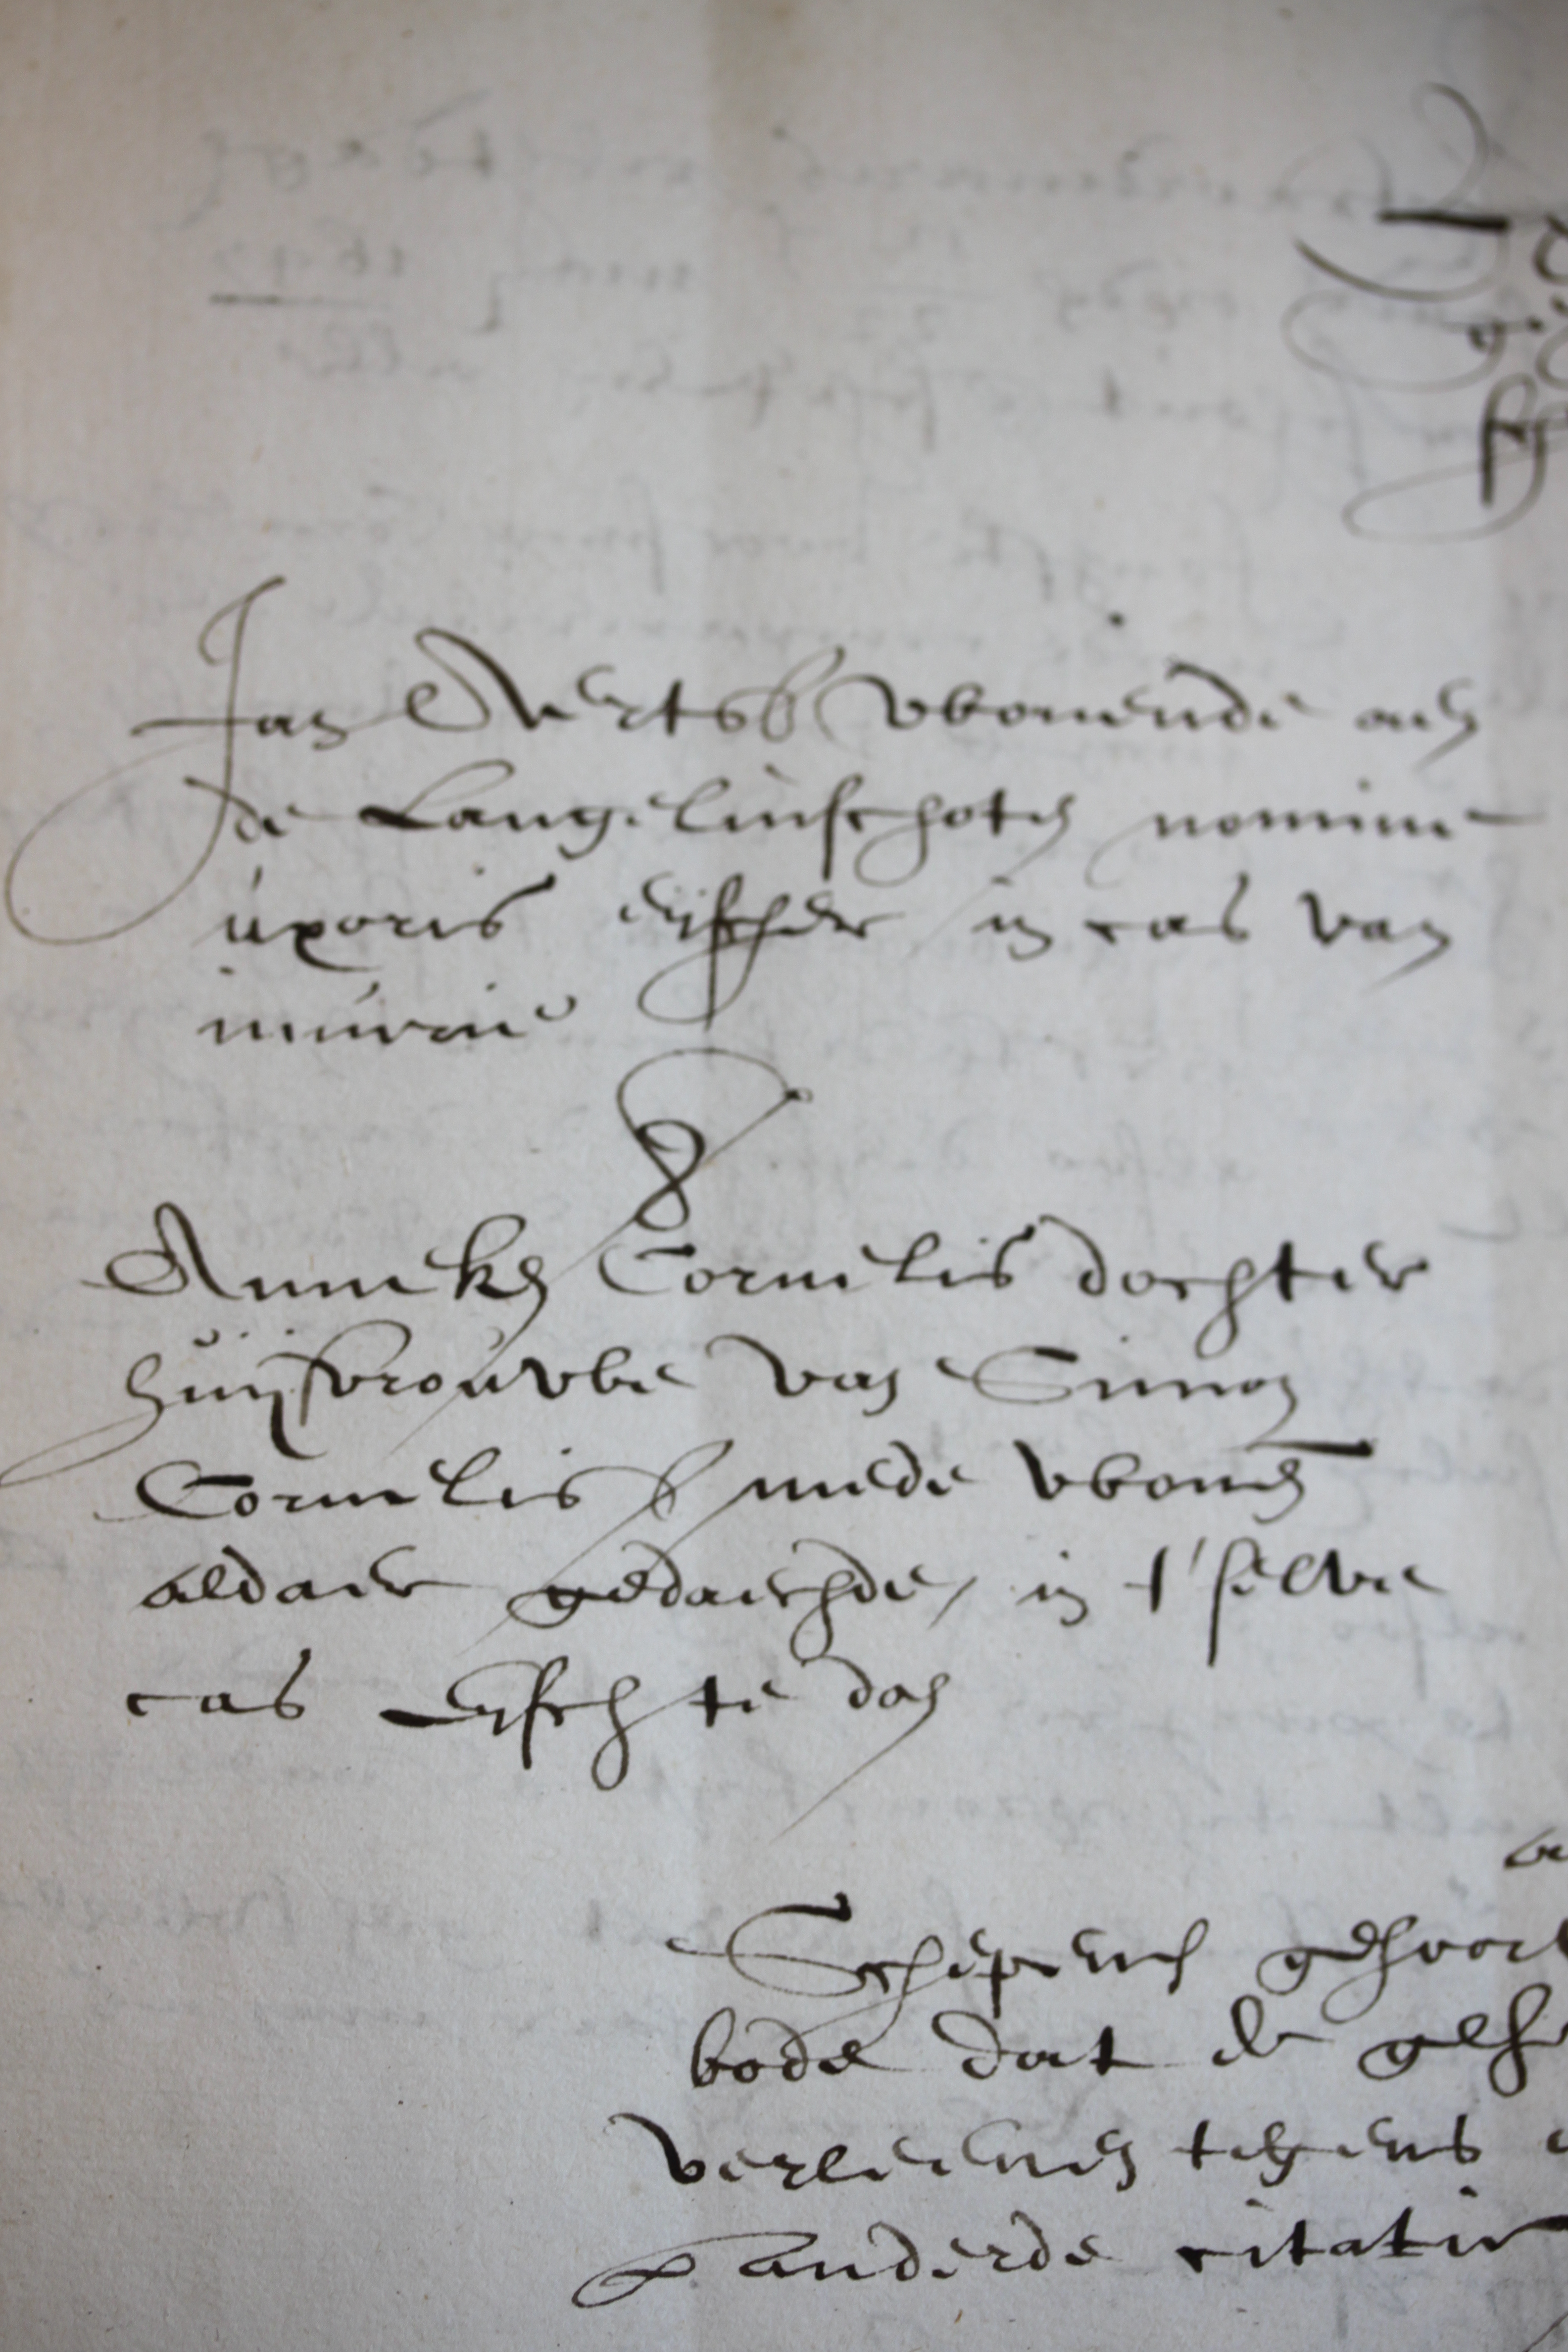 Jan Aertsß wonende aen
de Langelinschoten nomine
uxoris eijscher in cas van
iniurie
Anneken Cornelis dochter
huijsvrouwe van Simon
Cornelisß mede wonen
aldaer gedaechde, in t'selve
cas Eijschte dach
Schepens gehoort
bode dat de
verleenen tegens
anderde citatie